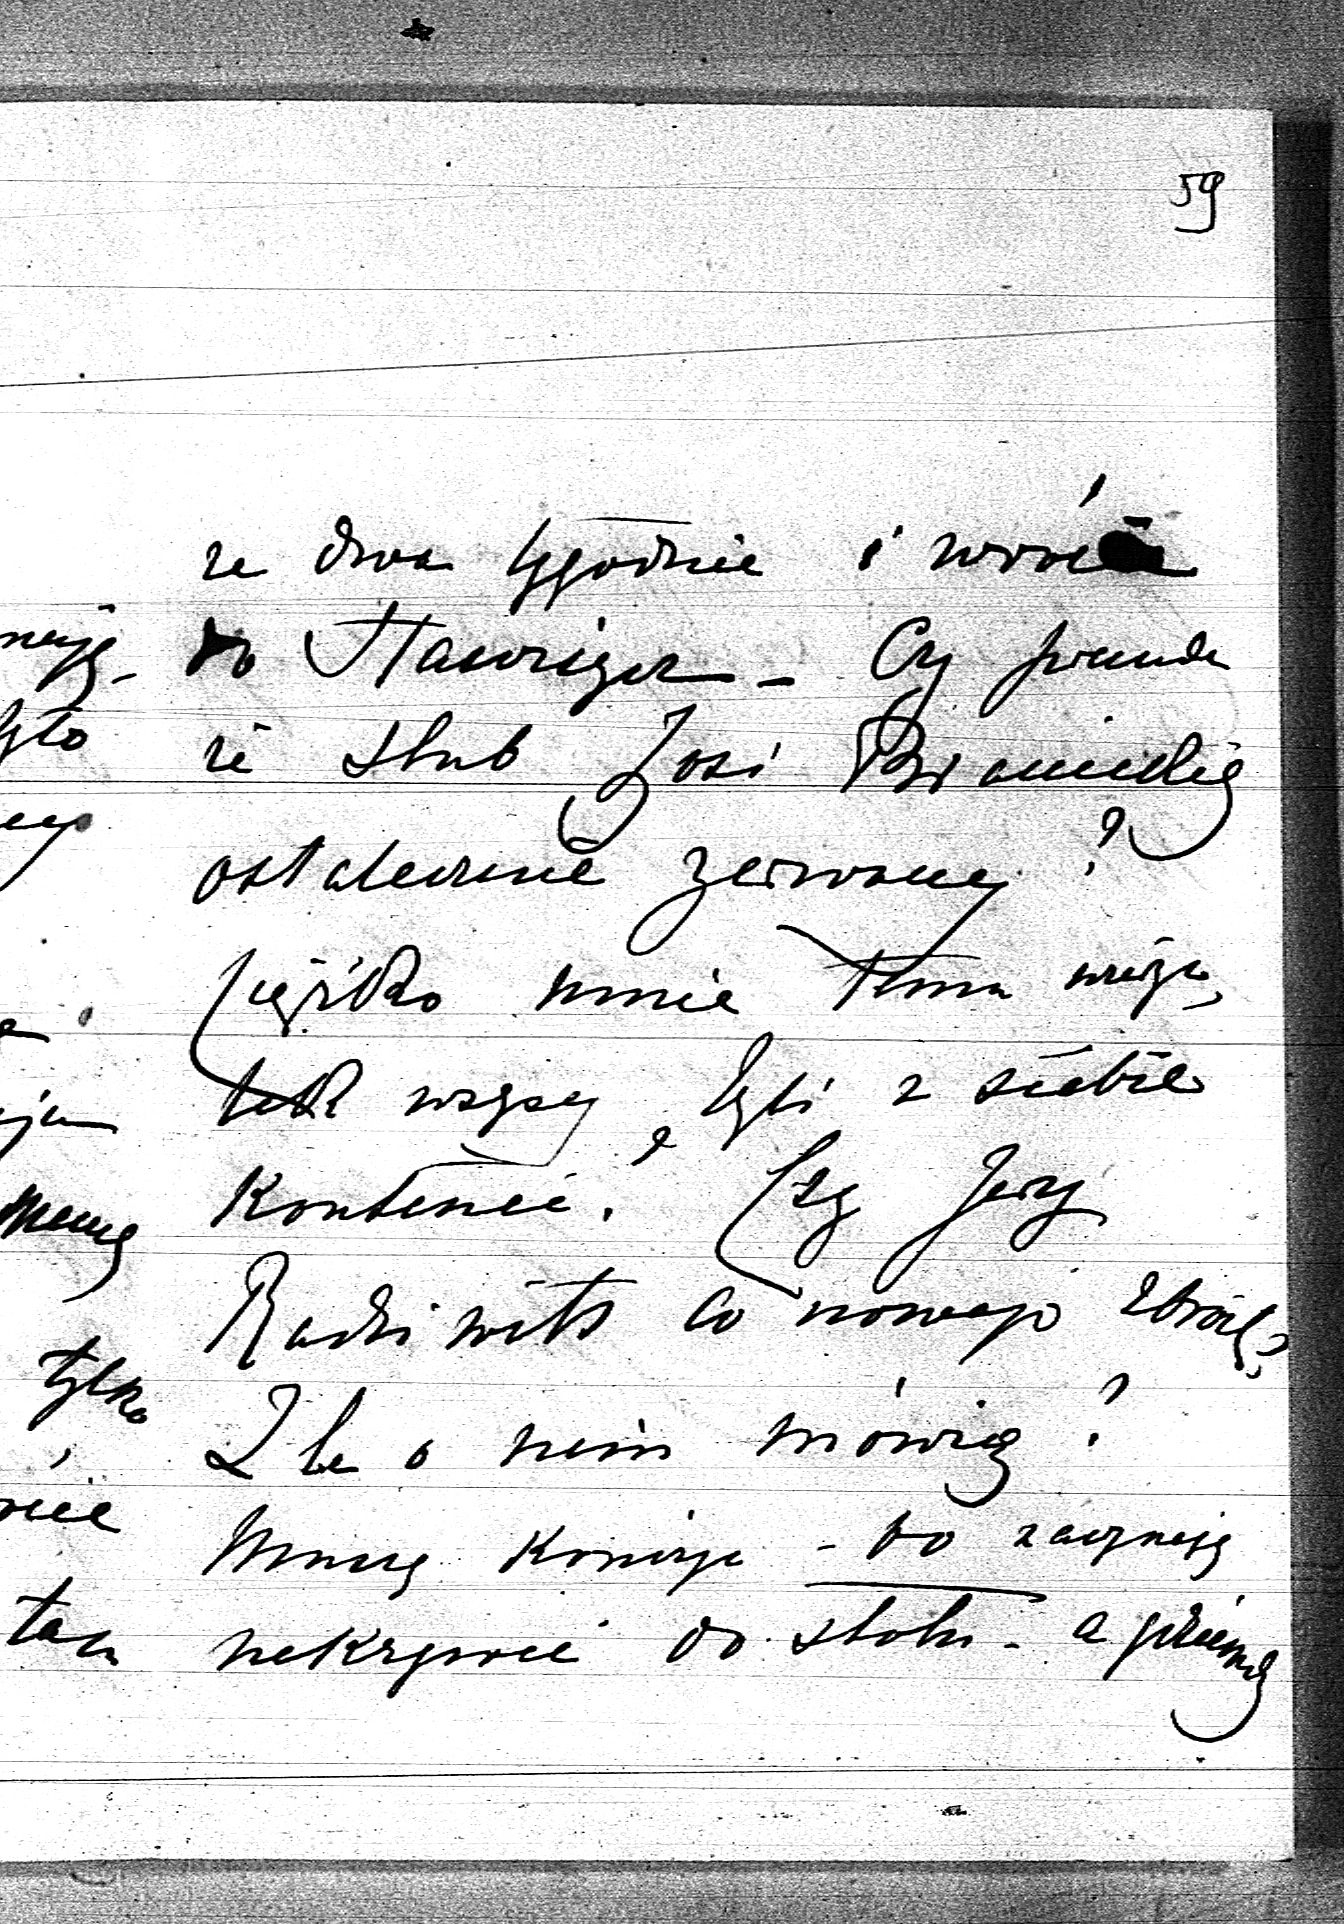 59
za dwa tygodnie i wróci
do Stawiszcz - Czy prawda
że ślub Zosi Branickiej
ostatecznie zerwany?
Ciężko mnie temu wierzyć,
tak wszyscy byli z siebie
kontenci. Czy Jerzy
Radziwiłł co nowego zbroił,
Źle o nim mówią?
Muszę kończyć - bo zaczynają
nakrywać do stołu - a piszę
nają
było
muszę
tylko
tam